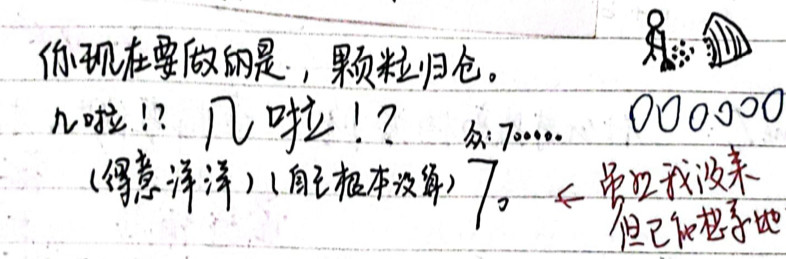 你现在要做的是，颗粒归仓。
几啦!? 几啦!? 众:7……
000000
(得意洋洋)(自己根本没算) 7。 ← 虽然我没来
但已能想象他